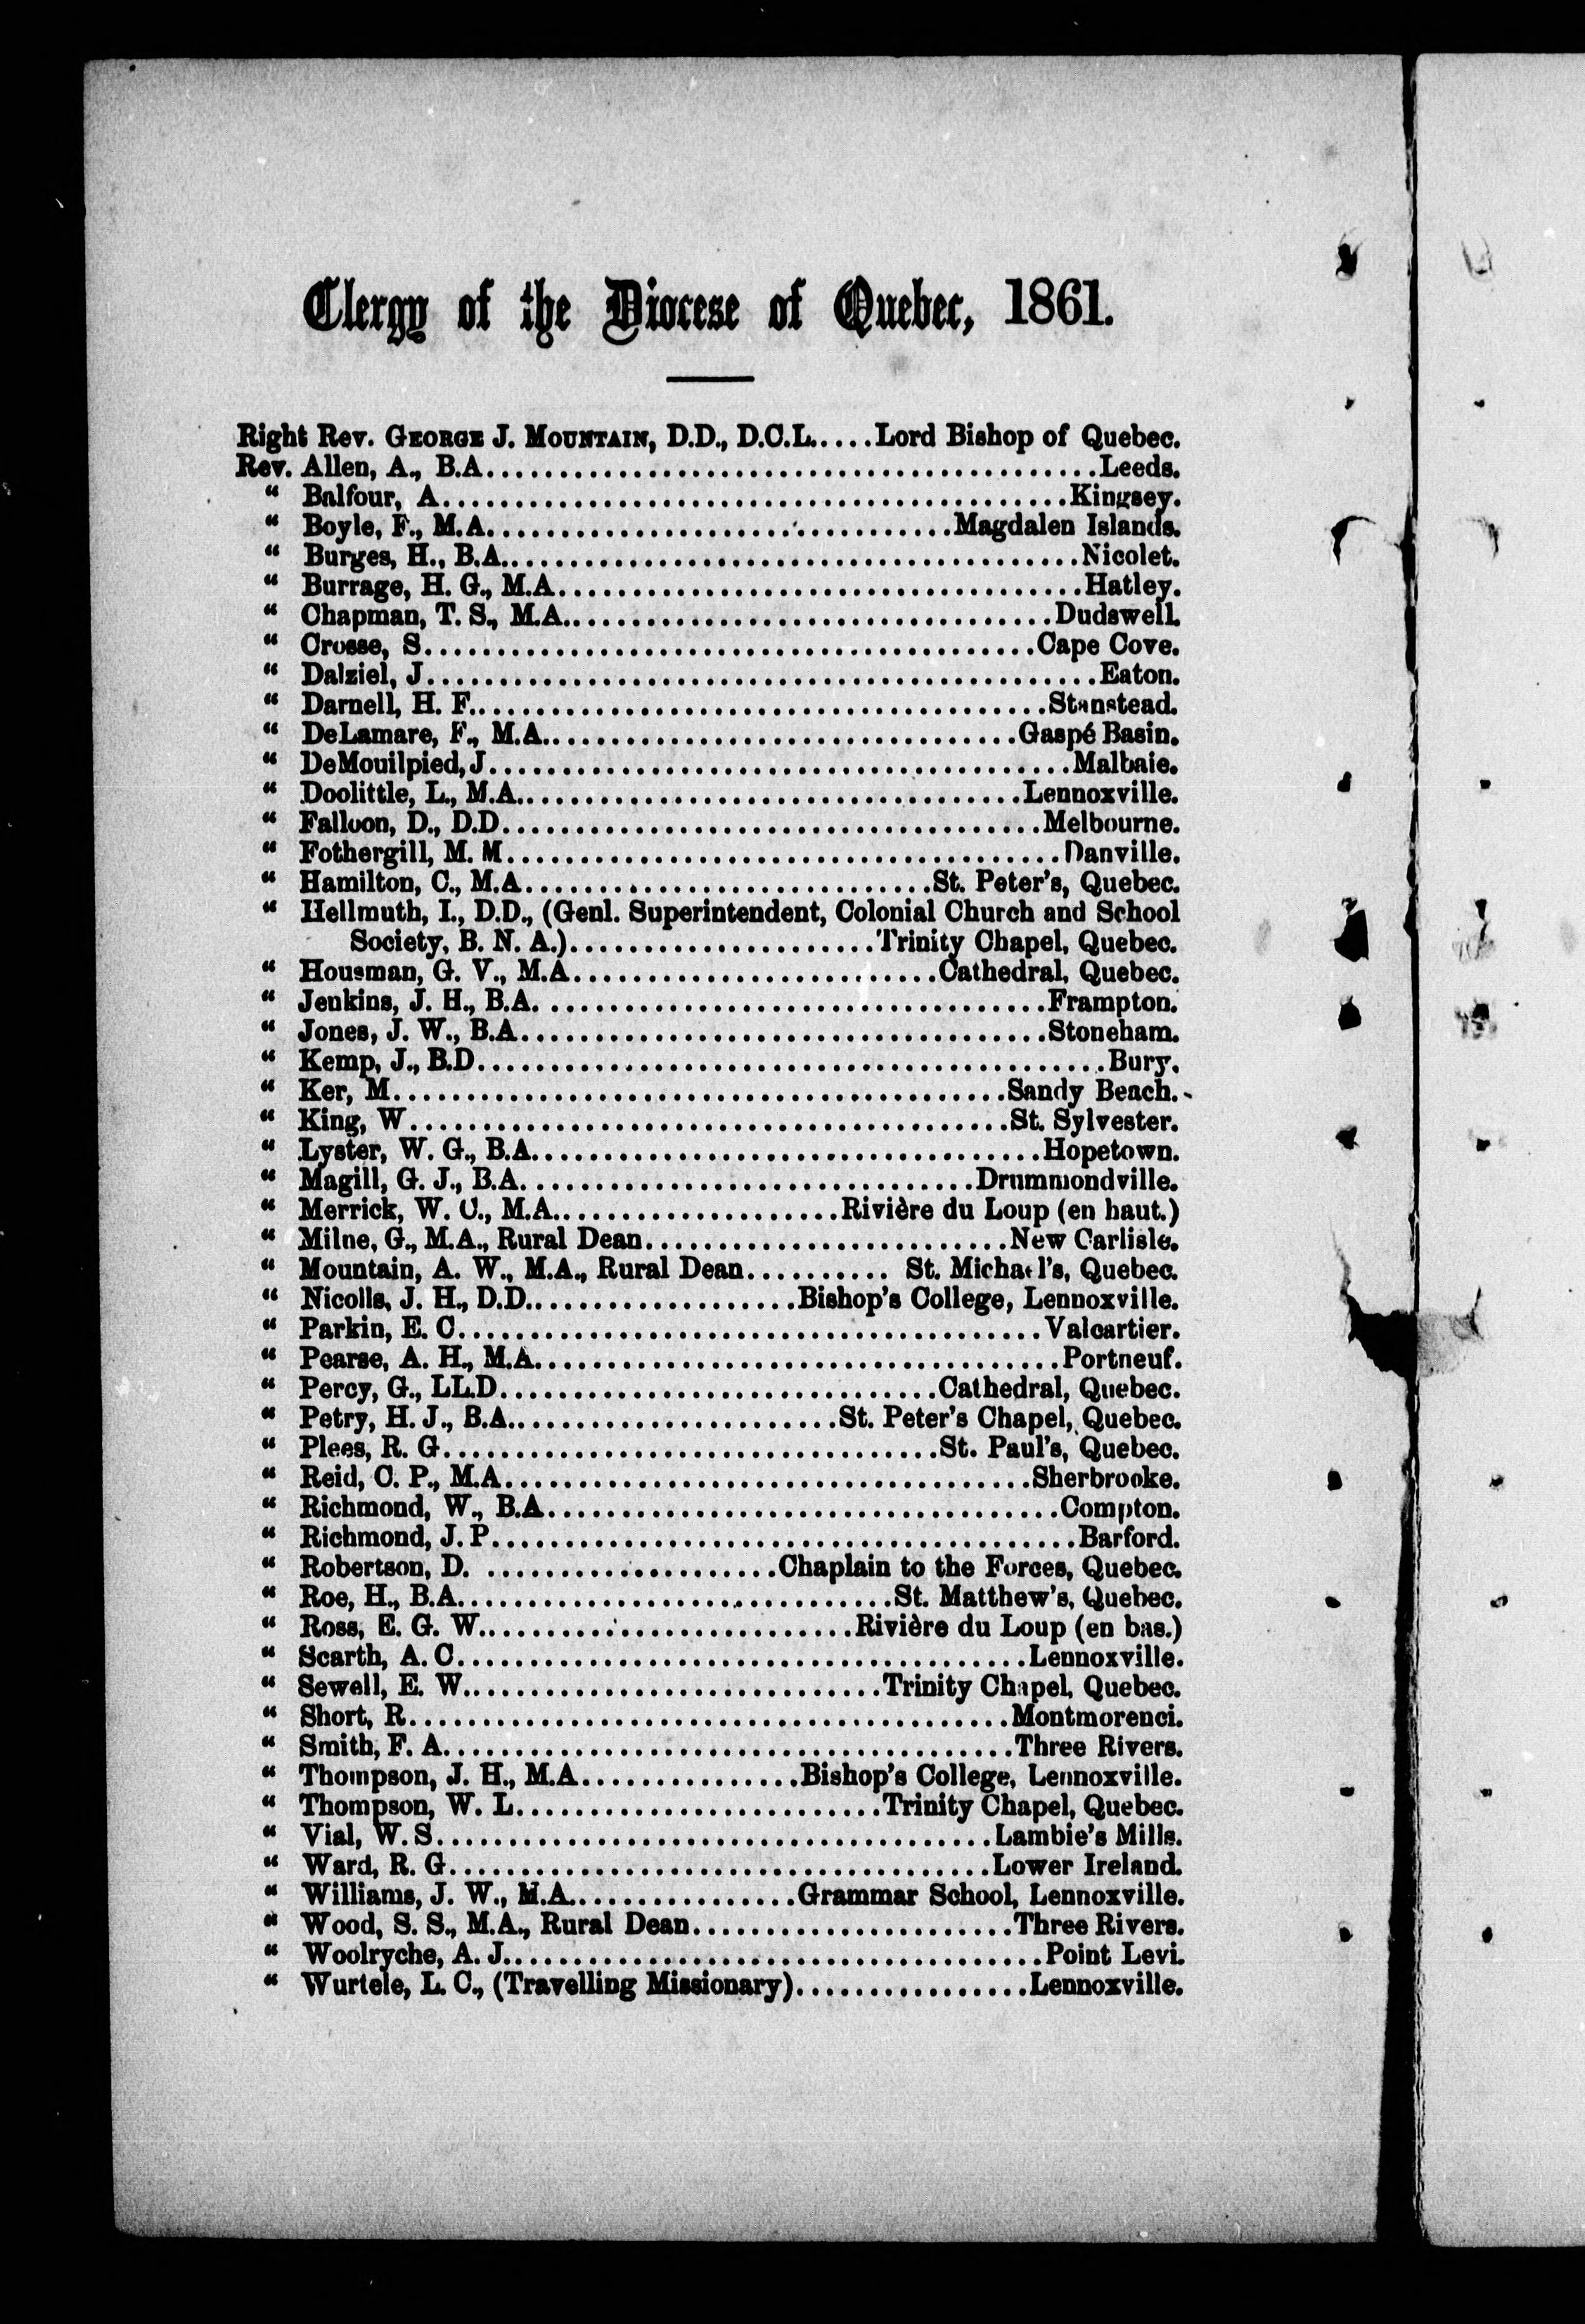 Clergy of the Diocese of Quebec, 1861.
Right Rev. GEORGE J. MOUNTAIN, D.D., D.C.L.....Lord Bishop of Quebec.
Rev. Allen, A., B.A..........Leeds.
“ Balfour, A..........Kingsey.
“ Boyle, F., M.A..........Magdalen Islands.
“ Burges, H., B.A..........Nicolet.
“ Burrage, H. G., M.A..........Hatley.
“ Chapman, T. S., M.A..........Dudswell.
“ Crosse, S..........Cape Cove.
“ Dalziel, J..........Eaton.
“ Darnell, H. F..........Stanstead.
“ DeLamare, F., M.A..........Gaspé Basin.
“ DeMouilpied, J..........Malbaie.
“ Doolittle, L., M.A..........Lennoxville.
“ Falloon, D., D.D..........Melbourne.
“ Fothergill, M. M..........Danville.
“ Hamilton, C., M.A..........St. Peter's, Quebec.
“ Hellmuth, I., D.D., (Genl. Superintendent, Colonial Church and School
Society, B. N. A.)..........Trinity Chapel, Quebec.
“ Housman, G. V., M.A..........Cathedral, Quebec.
“ Jenkins, J. H., B.A..........Frampton.
“ Jones, J. W., B.A..........Stoneham.
“ Kemp, J., B.D..........Bury.
“ Ker, M..........Sandy Beach.
“ King, W..........St. Sylvester.
“ Lyster, W. G., B.A..........Hopetown.
“ Magill, G. J., B.A..........Drummondville.
“ Merrick, W. C., M.A..........Rivière du Loup (en haut.)
“ Milne, G., M.A., Rural Dean..........New Carlisle.
“ Mountain, A. W., M.A., Rural Dean.......... St. Michael's, Quebec.
“ Nicolls, J. H., D.D..........Bishop's College, Lennoxville.
“ Parkin, E. C..........Valcartier.
“ Pearse, A. H., M.A..........Portneuf.
“ Percy, G., LL.D..........Cathedral, Quebec.
“ Petry, H. J., B.A..........St. Peter's Chapel, Quebec.
“ Plees, R. G..........St. Paul's, Quebec.
“ Reid, C. P., M.A..........Sherbrooke.
“ Richmond, W., B.A..........Compton.
“ Richmond, J. P..........Barford.
“ Robertson, D. ..........Chaplain to the Forces, Quebec.
“ Roe, H., B.A..........St. Matthew's, Quebec.
“ Ross, E. G. W..........Rivière du Loup (en bas.)
“ Scarth, A. C..........Lennoxville.
“ Sewell, E. W..........Trinity Chapel, Quebec.
“ Short, R..........Montmorenci.
“ Smith, F. A..........Three Rivers.
“ Thompson, J. H., M.A..........Bishop's College, Lennoxville.
“ Thompson, W. L..........Trinity Chapel, Quebec.
“ Vial, W. S..........Lambie's Mills.
“ Ward, R. G..........Lower Ireland.
“ Williams, J. W., M.A..........Grammar School, Lennoxville.
“ Wood, S. S., M.A., Rural Dean..........Three Rivers.
“ Woolryche, A. J..........Point Levi.
“ Wurtele, L. C., (Travelling Missionary)..........Lennoxville.